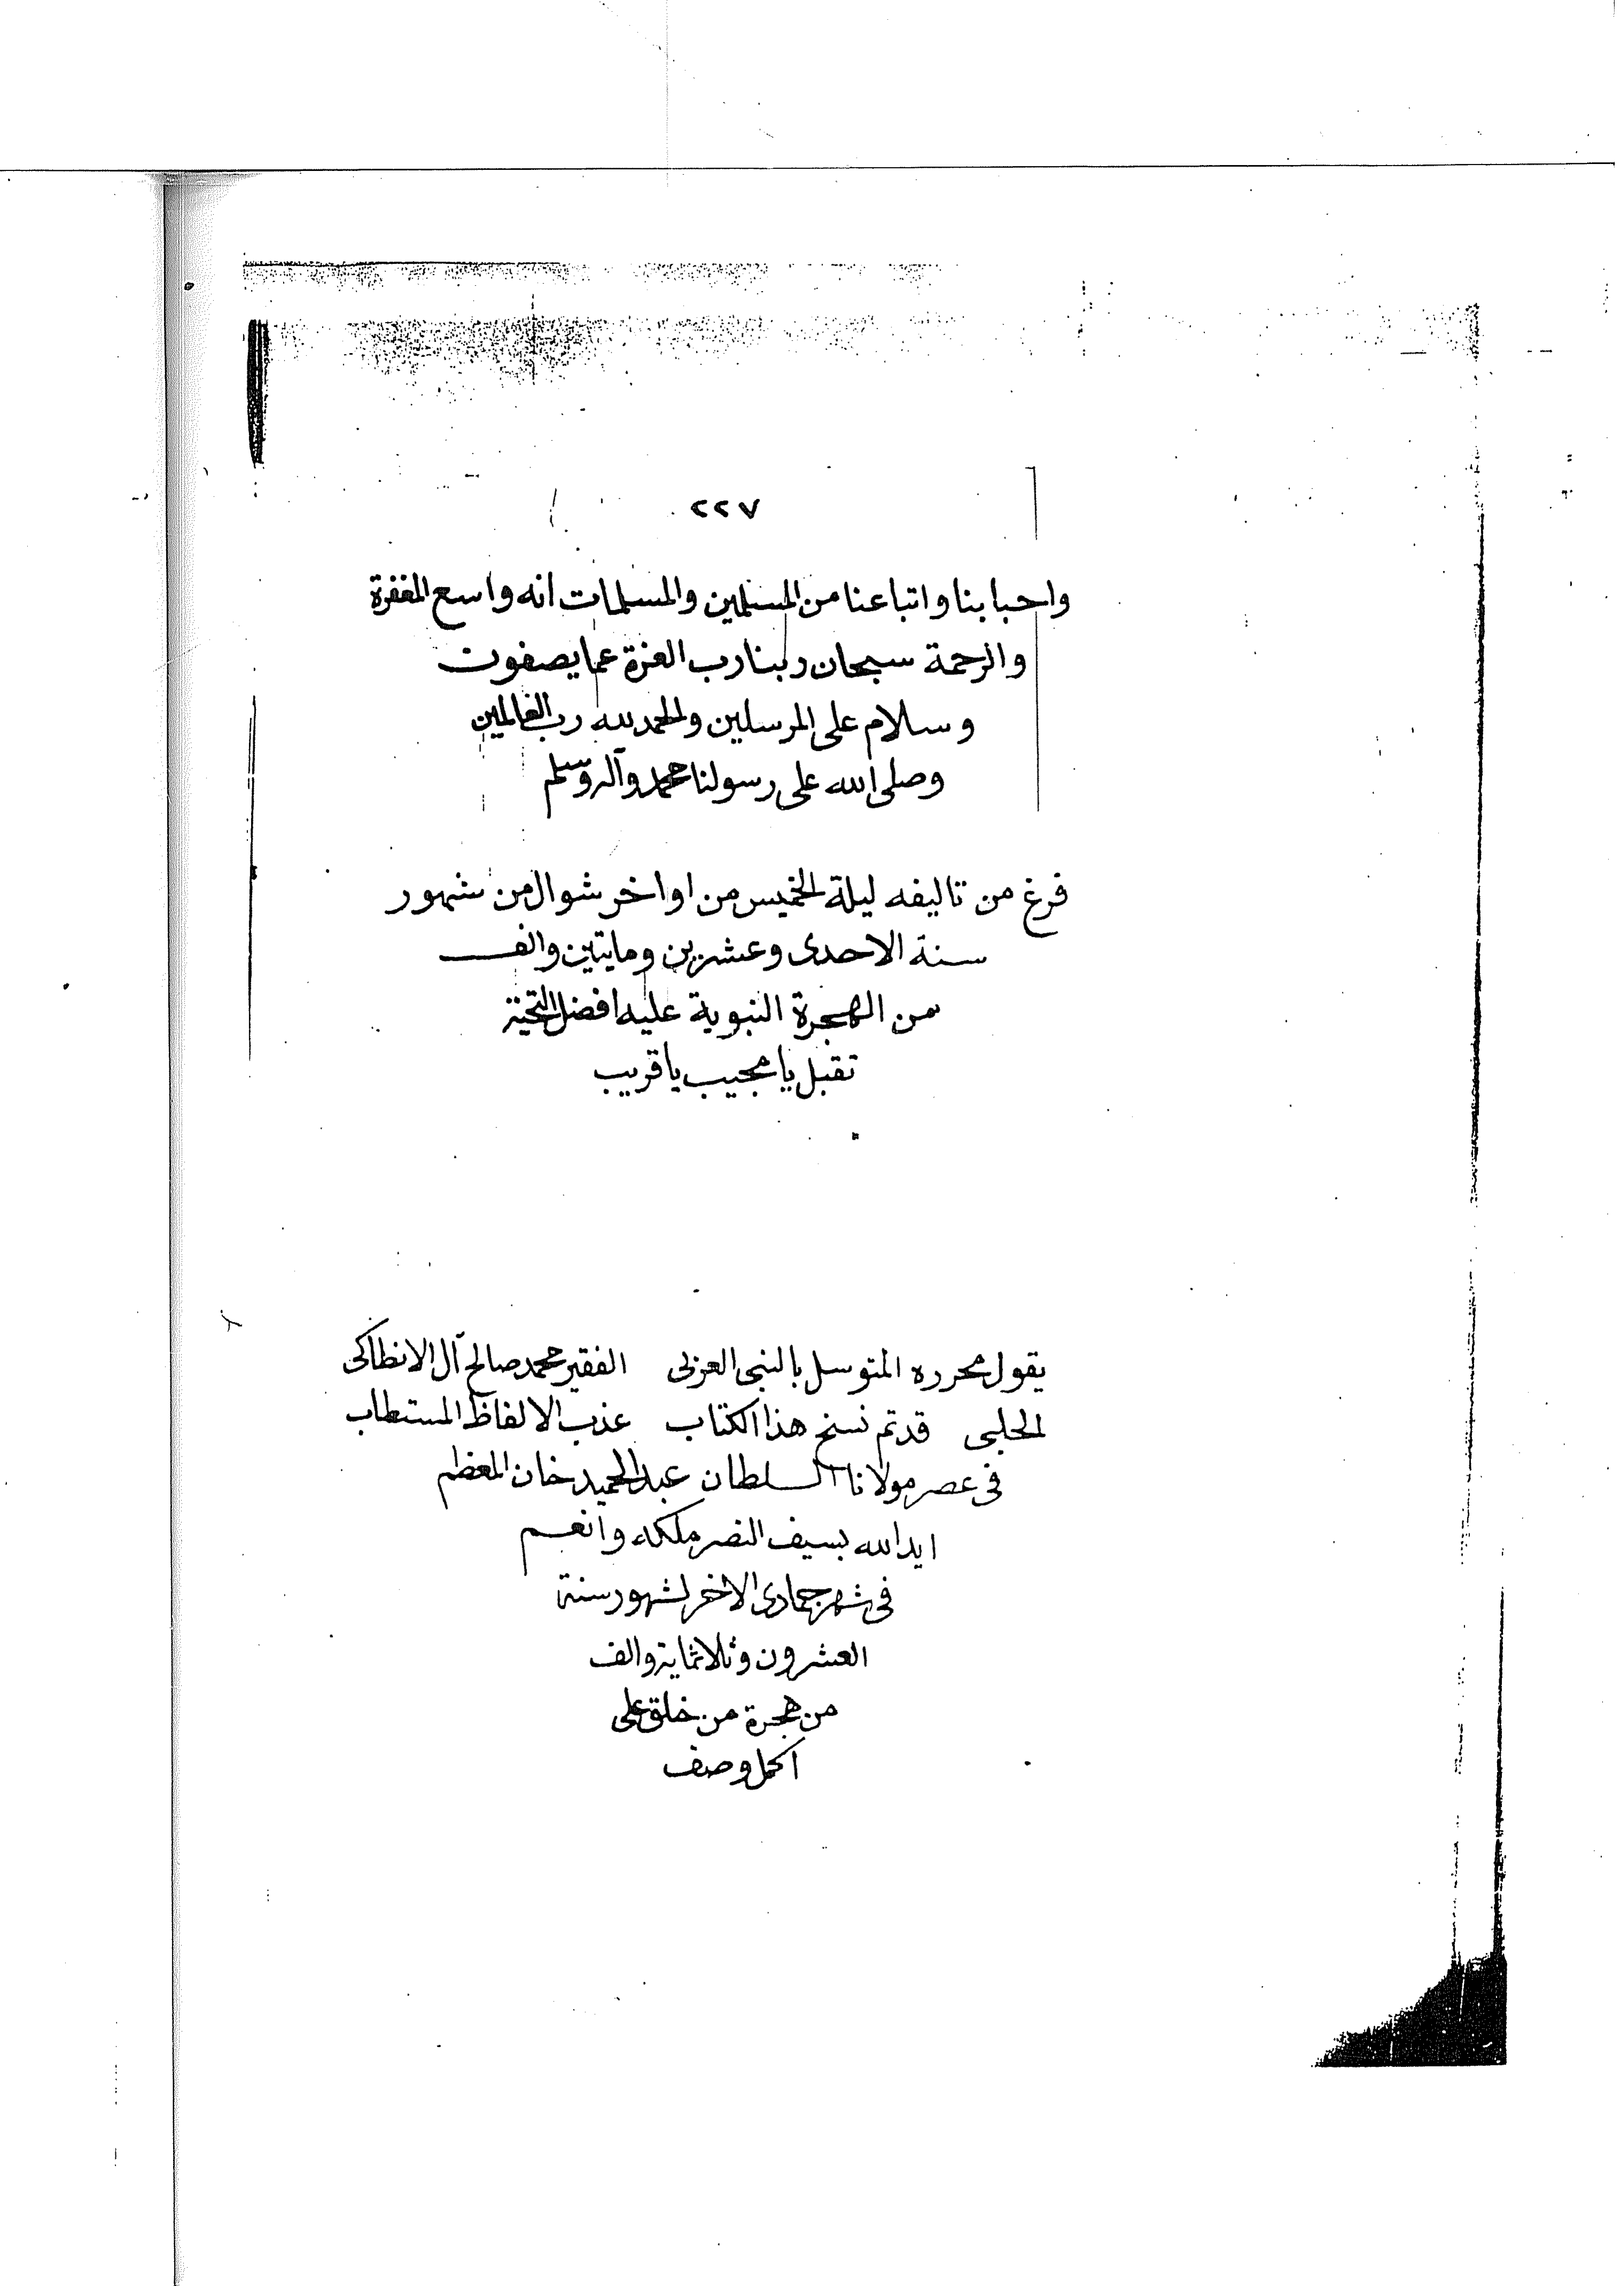 ٢٢٧
واحبابنا واتباعنا من المسلمين والمسلمات انه واسع المغفرة
والرحمة سبحان ربنا رب العزة عما يصفون
وسلام على المرسلين والحمد لله رب العالمين
وصلى الله على رسولنا محمد وآله وسلم
فرغ من تاليفه ليلة الخميس من اواخر شوال من شهور
سنة الاحدى وعشرين ومايتين والف
من الهجرة النبوية عليه افضل التحية
تقبل يا مجيب يا قريب
يقول محرره المتوسل بالنبى العربى الفقير محمد صالح آل الانطاكى
الحلبى قد تم نسخ هذا الكتاب عذب الالفاظ المستطاب
فى عصر مولانا السلطان عبد الحميد خان المعظم
ايد الله بسيف النصر ملكه وانعم
فى شهر جمادى الاخر لشهور سنة
العشرون وثلاثماية والف
من هجرة من خلق على
اكمل وصف